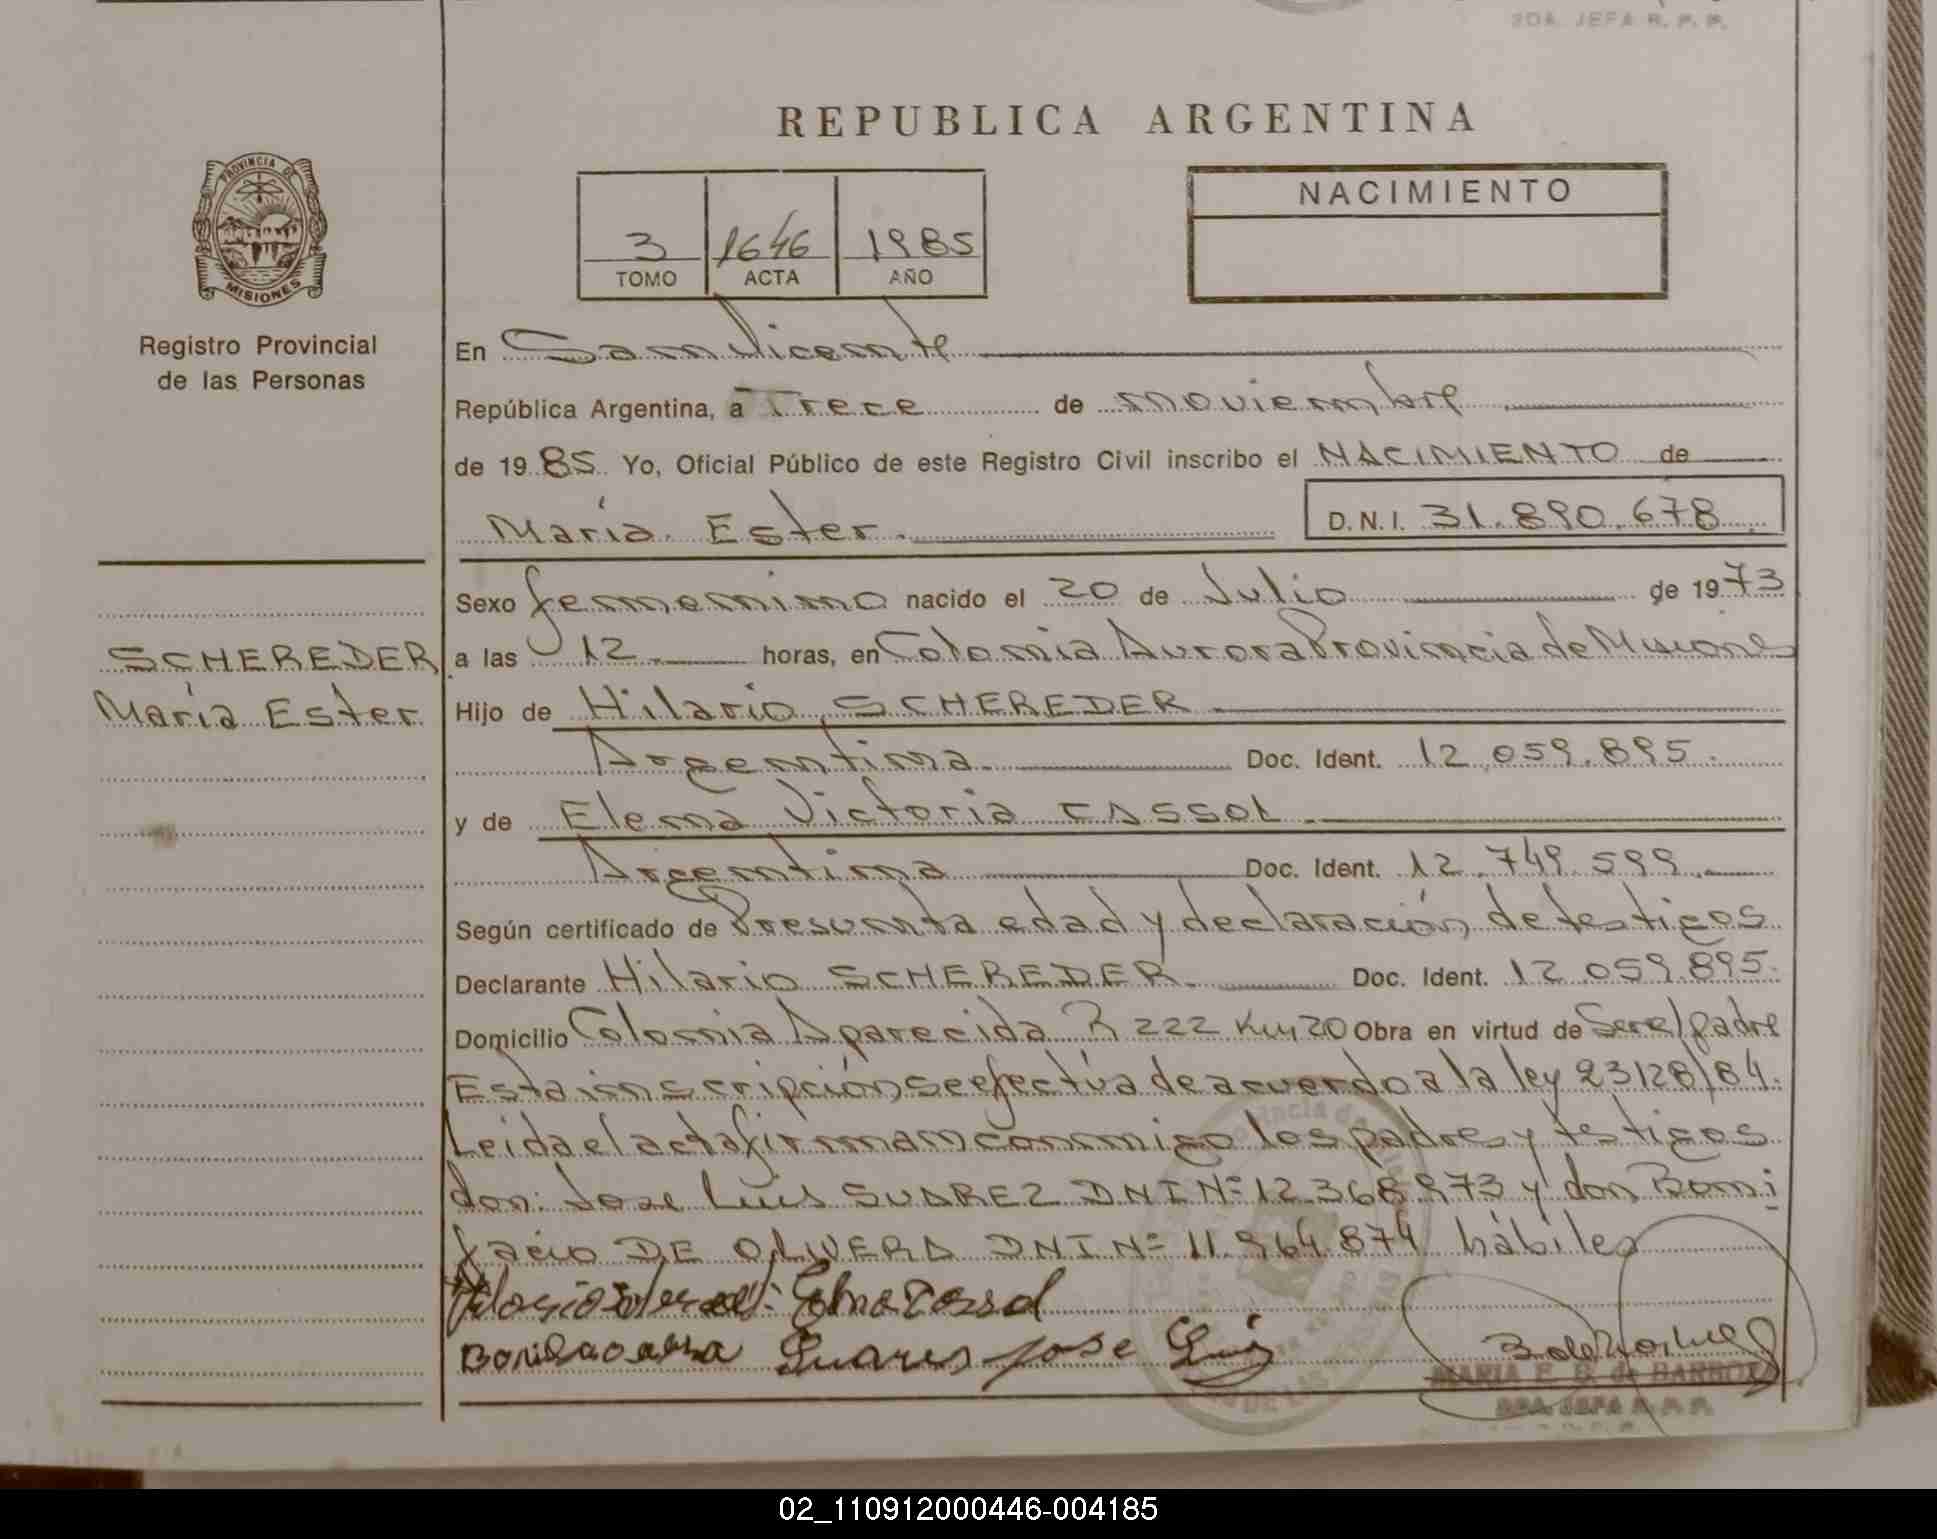 2DA. JEFA R. P. P.
REPUBLICA ARGENTINA
PROVINCIA DE
MISIONES
Registro Provincial
de las Personas
3 1646 1985
TOMO ACTA AÑO
NACIMIENTO
En San Vicente
República Argentina, a Trece de noviembre
de 1985 Yo, Oficial Público de este Registro Civil inscribo el NACIMIENTO de
María Ester.
D.N.I. 31.890.678
SCHEREDER
María Ester
Sexo femenino nacido el 20 de Julio de 1973
a las 12 horas, en Colonia Aurora Provincia de Misiones
Hijo de Hilario SCHEREDER
Argentina Doc. Ident. 12.059.895.
y de Elena Victoria CASSOL
Argentina Doc. Ident. 12.749.599.
Según certificado de Presunta edad y declaración de testigos
Declarante Hilario SCHEREDER Doc. Ident. 12.059.895.
Domicilio Colonia Aparecida R 222 Km 20 Obra en virtud de Ser el padre
Esta inscripción se efectúa de acuerdo a la ley 23128/84.
Leida el acta firman conmigo los padres y testigos
don: Jose Luis SUAREZ DNI Nº 12.368.973 y don Boni
facio DE OLIVERA DNI Nº 11.964.874 hábiles
Elena Cassol
Suares Jose Luis
MARIA E. B. de BARBOZA
2DA. JEFA R. P. P.
02_110912000446-004185